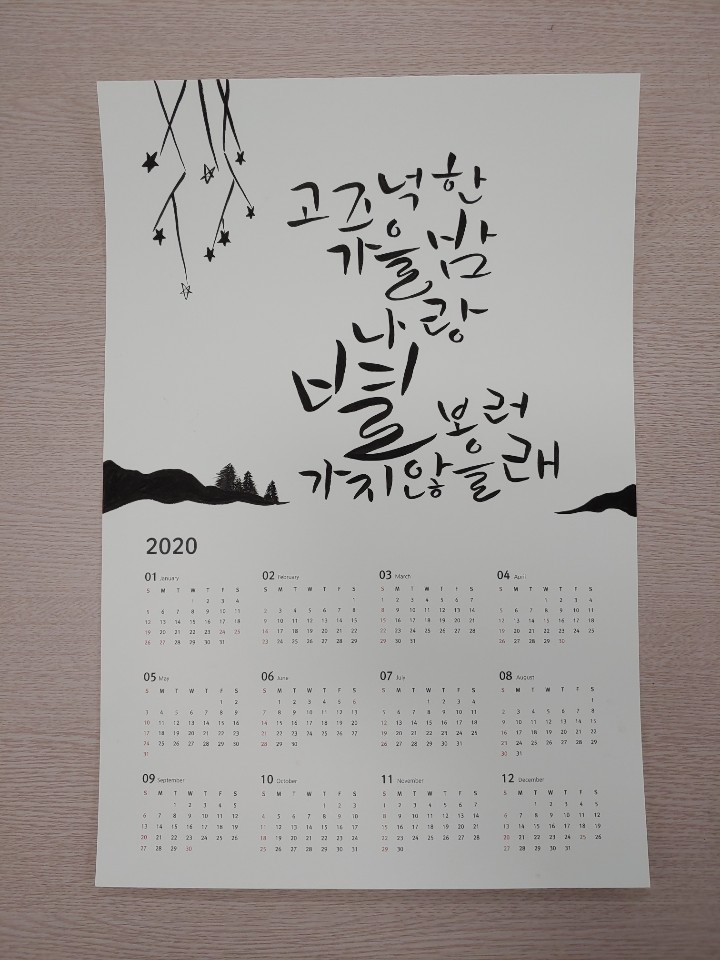 고즈넉한
가을밤
나랑
별 보러
가지않을래
2020
01 January
S M T W T F S
1 2 3 4
5 6 7 8 9 10 11
12 13 14 15 16 17 18
19 20 21 22 23 24 25
26 27 28 29 30 31
02 February
S M T W T F S
1
2 3 4 5 6 7 8
9 10 11 12 13 14 15
16 17 18 19 20 21 22
23 24 25 26 27 28 29
03 March
S M T W T F S
1 2 3 4 5 6 7
8 9 10 11 12 13 14
15 16 17 18 19 20 21
22 23 24 25 26 27 28
29 30 31
04 April
S M T W T F S
1 2 3 4
5 6 7 8 9 10 11
12 13 14 15 16 17 18
19 20 21 22 23 24 25
26 27 28 29 30
05 May
S M T W T F S
1 2
3 4 5 6 7 8 9
10 11 12 13 14 15 16
17 18 19 20 21 22 23
24 25 26 27 28 29 30
31
06 June
S M T W T F S
1 2 3 4 5 6
7 8 9 10 11 12 13
14 15 16 17 18 19 20
21 22 23 24 25 26 27
28 29 30
07 July
S M T W T F S
1 2 3 4
5 6 7 8 9 10 11
12 13 14 15 16 17 18
19 20 21 22 23 24 25
26 27 28 29 30 31
08 August
S M T W T F S
1
2 3 4 5 6 7 8
9 10 11 12 13 14 15
16 17 18 19 20 21 22
23 24 25 26 27 28 29
30 31
09 September
S M T W T F S
1 2 3 4 5
6 7 8 9 10 11 12
13 14 15 16 17 18 19
20 21 22 23 24 25 26
27 28 29 30
10 October
S M T W T F S
1 2 3
4 5 6 7 8 9 10
11 12 13 14 15 16 17
18 19 20 21 22 23 24
25 26 27 28 29 30 31
11 November
S M T W T F S
1 2 3 4 5 6 7
8 9 10 11 12 13 14
15 16 17 18 19 20 21
22 23 24 25 26 27 28
29 30
12 December
S M T W T F S
1 2 3 4 5
6 7 8 9 10 11 12
13 14 15 16 17 18 19
20 21 22 23 24 25 26
27 28 29 30 31